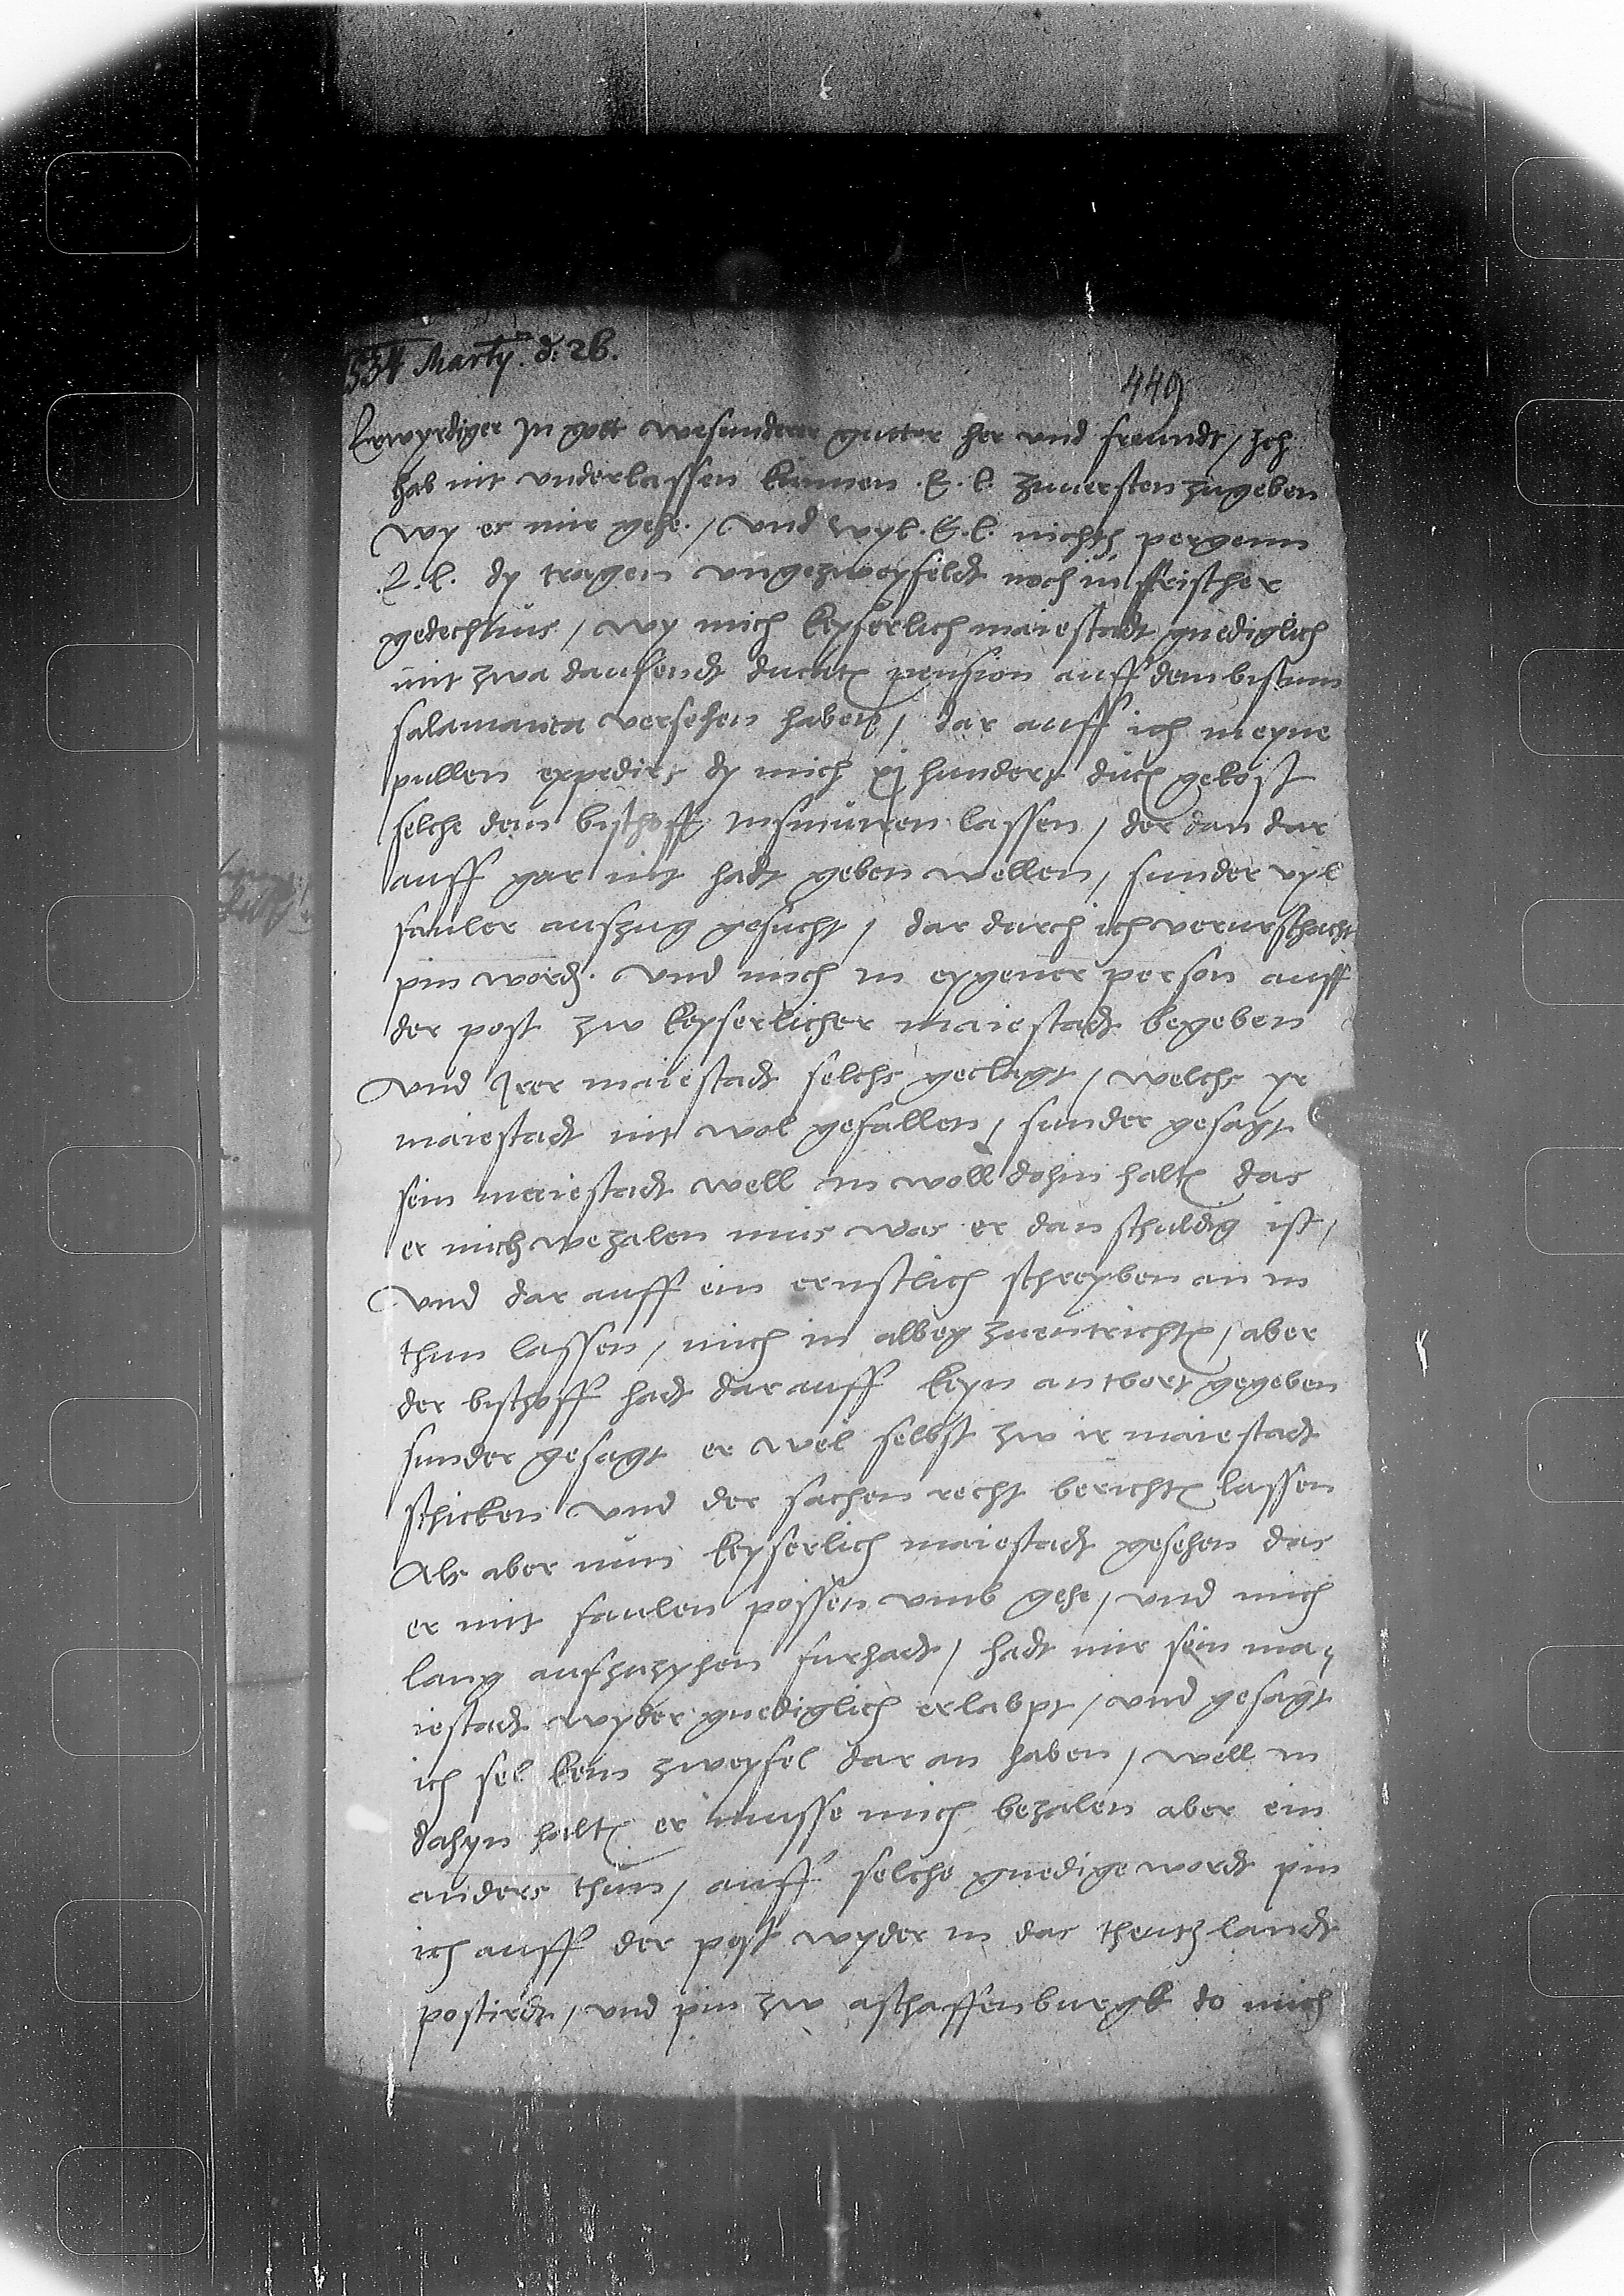 1534 Marty. d. 26.
449
Erwyrdiger In gott wesunderer gutter her und freundt / Ich
hab nit underlassen kinnen .E.l. zuuersten zugeben
wy es mir gehe / Und wyl .E.l. nichts pergenn
E.l. dy tragen ungezweyfeldt noch in frischer
gedechtnus / wy mich keyserlich maiestadt gnediglich
mit zwa dausendt ducat pension auff dem bistum
salamanca versehen haben / dar auff ich meyne
pullen expedirt dy mich xj hundert duc gekost
selche dem bischoff insinuiren lassen / der dan dar
auff gar nit hadt geben wellen / sunder vyl
fauler auszug gesucht / dar durch ich verurschacht
pin word. Und mich in eygener person auff
der post zw keyserlicher maiestadt begeben
Und Irer maiestadt selchs geclagt / welchs yr
maiestadt nit wol gefallen / sunder gesagt
sein maiestadt well in woll dohin halt das
er mich wezalen mus was er dan schuldig ist /
Und dar auff ein ernstlich schreyben an in
thun lassen / mich in albeg zuentricht / aber
der bischoff hadt dar auff keyn antbort gegeben
sunder gesagt er wel selbst zw ir maiestadt
schicken und der sachen recht bericht lassen
Als aber nun keyserlich maiestadt gesehen das
er mit faulen possen umb gehe / und mich
lang aufzuzyhen furhadt / hadt mir sein ma=
iestadt wyder gnediglich erlabpt / und gesagt
ich sel kein zweyfel dar an haben / well in
dahyn halt er musse mich bezalen aber ein
anders thun / auff selche gnedige wordt pin
ich auff der post wyder in das theutzlandt
postirdt / und pin zw aschaffenburgk do mich